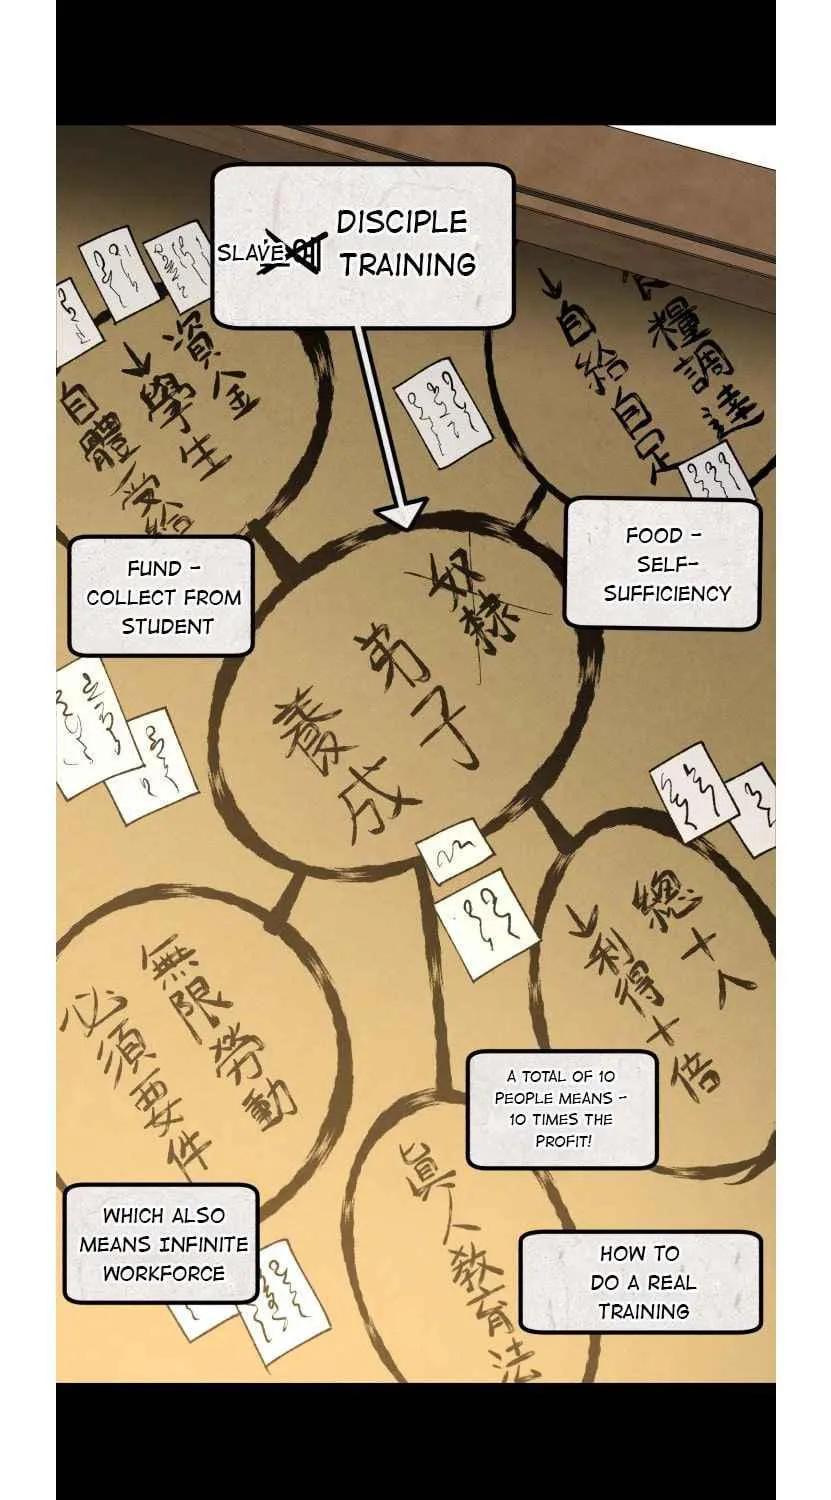 DISCIPLE
SLAVE
TRAINING
資金
↓學生
自體受給
食糧調達
↓自給自足
FUND -
COLLECT FROM
STUDENT
FOOD -
SELF-
SUFFICIENCY
奴隸
弟子
養成
總十人
↓利得十倍
無限勞動
必須要件
A TOTAL OF 10
PEOPLE MEANS -
10 TIMES THE
PROFIT!
眞人敎育法
WHICH ALSO
MEANS INFINITE
WORKFORCE
HOW TO
DO A REAL
TRAINING